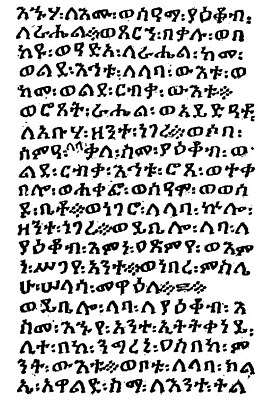 እኍሃ፡ለእሙ፡ወሰዓማ፡ያዕቆብ፡
ለራሔል፨ወጸርኀ፡በቃሉ፡ወበ
ከየ፡ለራሔል፡ከመ፡
ወልደ፡እኅቱ፡ለላባ፡ውእቱ፡ወ
ከመ፡ወልደ፡ርብቃ፡ውእቱ፨
ወሮጸት፡ራሔል፡ወአይድዓቶ፡
ለአቡሃ፡ዘንተ፡ነገረ፨ወሶበ፡
ሰምዓ፡ላባ፡ቃለ፡ስመ፡ያዕቆብ፡ወ
ልደ፡ርብቃ፡እኅቱ፡ሮጸ፡ወተቀ
በሎ፡ወሐቀፎ፡ወሰዓሞ፡ወወሰ
ዶ፡ቤቶ፨ወነገሮ፡ለላባ፡ኵሎ፡
ዘንተ፡ነገረ፨ወይቤሎ፡ላባ፡ለ
ያዕቆብ፡እምነ፡ዐጽምየ፡ወእም
ነ፡ሥጋየ፡አንተ፨ወነበረ፡ምስሌ
ሁ፡ሠላሳ፡መዋዕለ፨
ወይቤሎ፡ላባ፡ለያዕቆብ፡እ
ስመ፡እኁየ፡አንተ፡ኢትትቀነይ፡
ሊተ፡በከ፡ንግረኒ፡ዐስበከ፡ም
ንት፡ውእቱ፨ወቦቱ፡ለላባ፡ክል
ኤ፡አዋልድ፡ስማ፡ለእንተ፡ትል